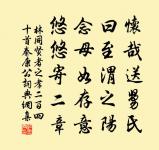 懷哉送舅氏
曰至渭之陽
念母如存意
悠悠寄二章
林同賢者之孝二百四
十首秦康公詞典網集